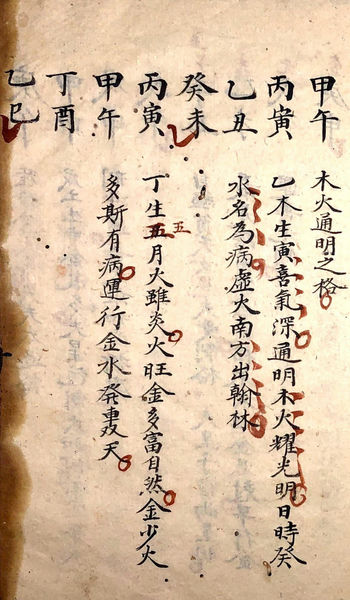 甲午 木火通明之格
丙寅 乙木生寅喜氣深通明木火耀光明日時癸
乙丑 水名為病虛火南方出翰林
癸未
丙寅 丁生五月火雖炎火旺金多富自然金少火
甲午 多斯有病運行金水發衝天
丁酉
乙巳